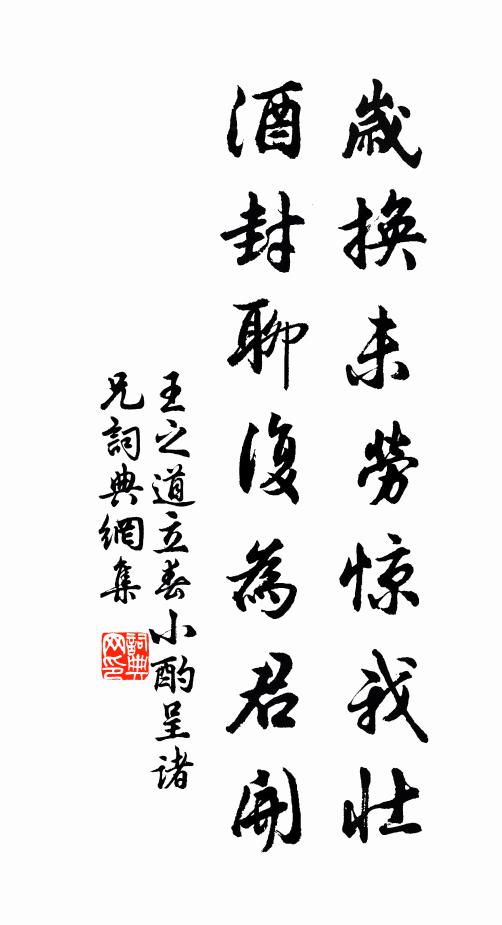 歲換未勞惊我壯
酒封聊復為君開
王之道立春小酌呈諸
兄詞典網集
詞典网印